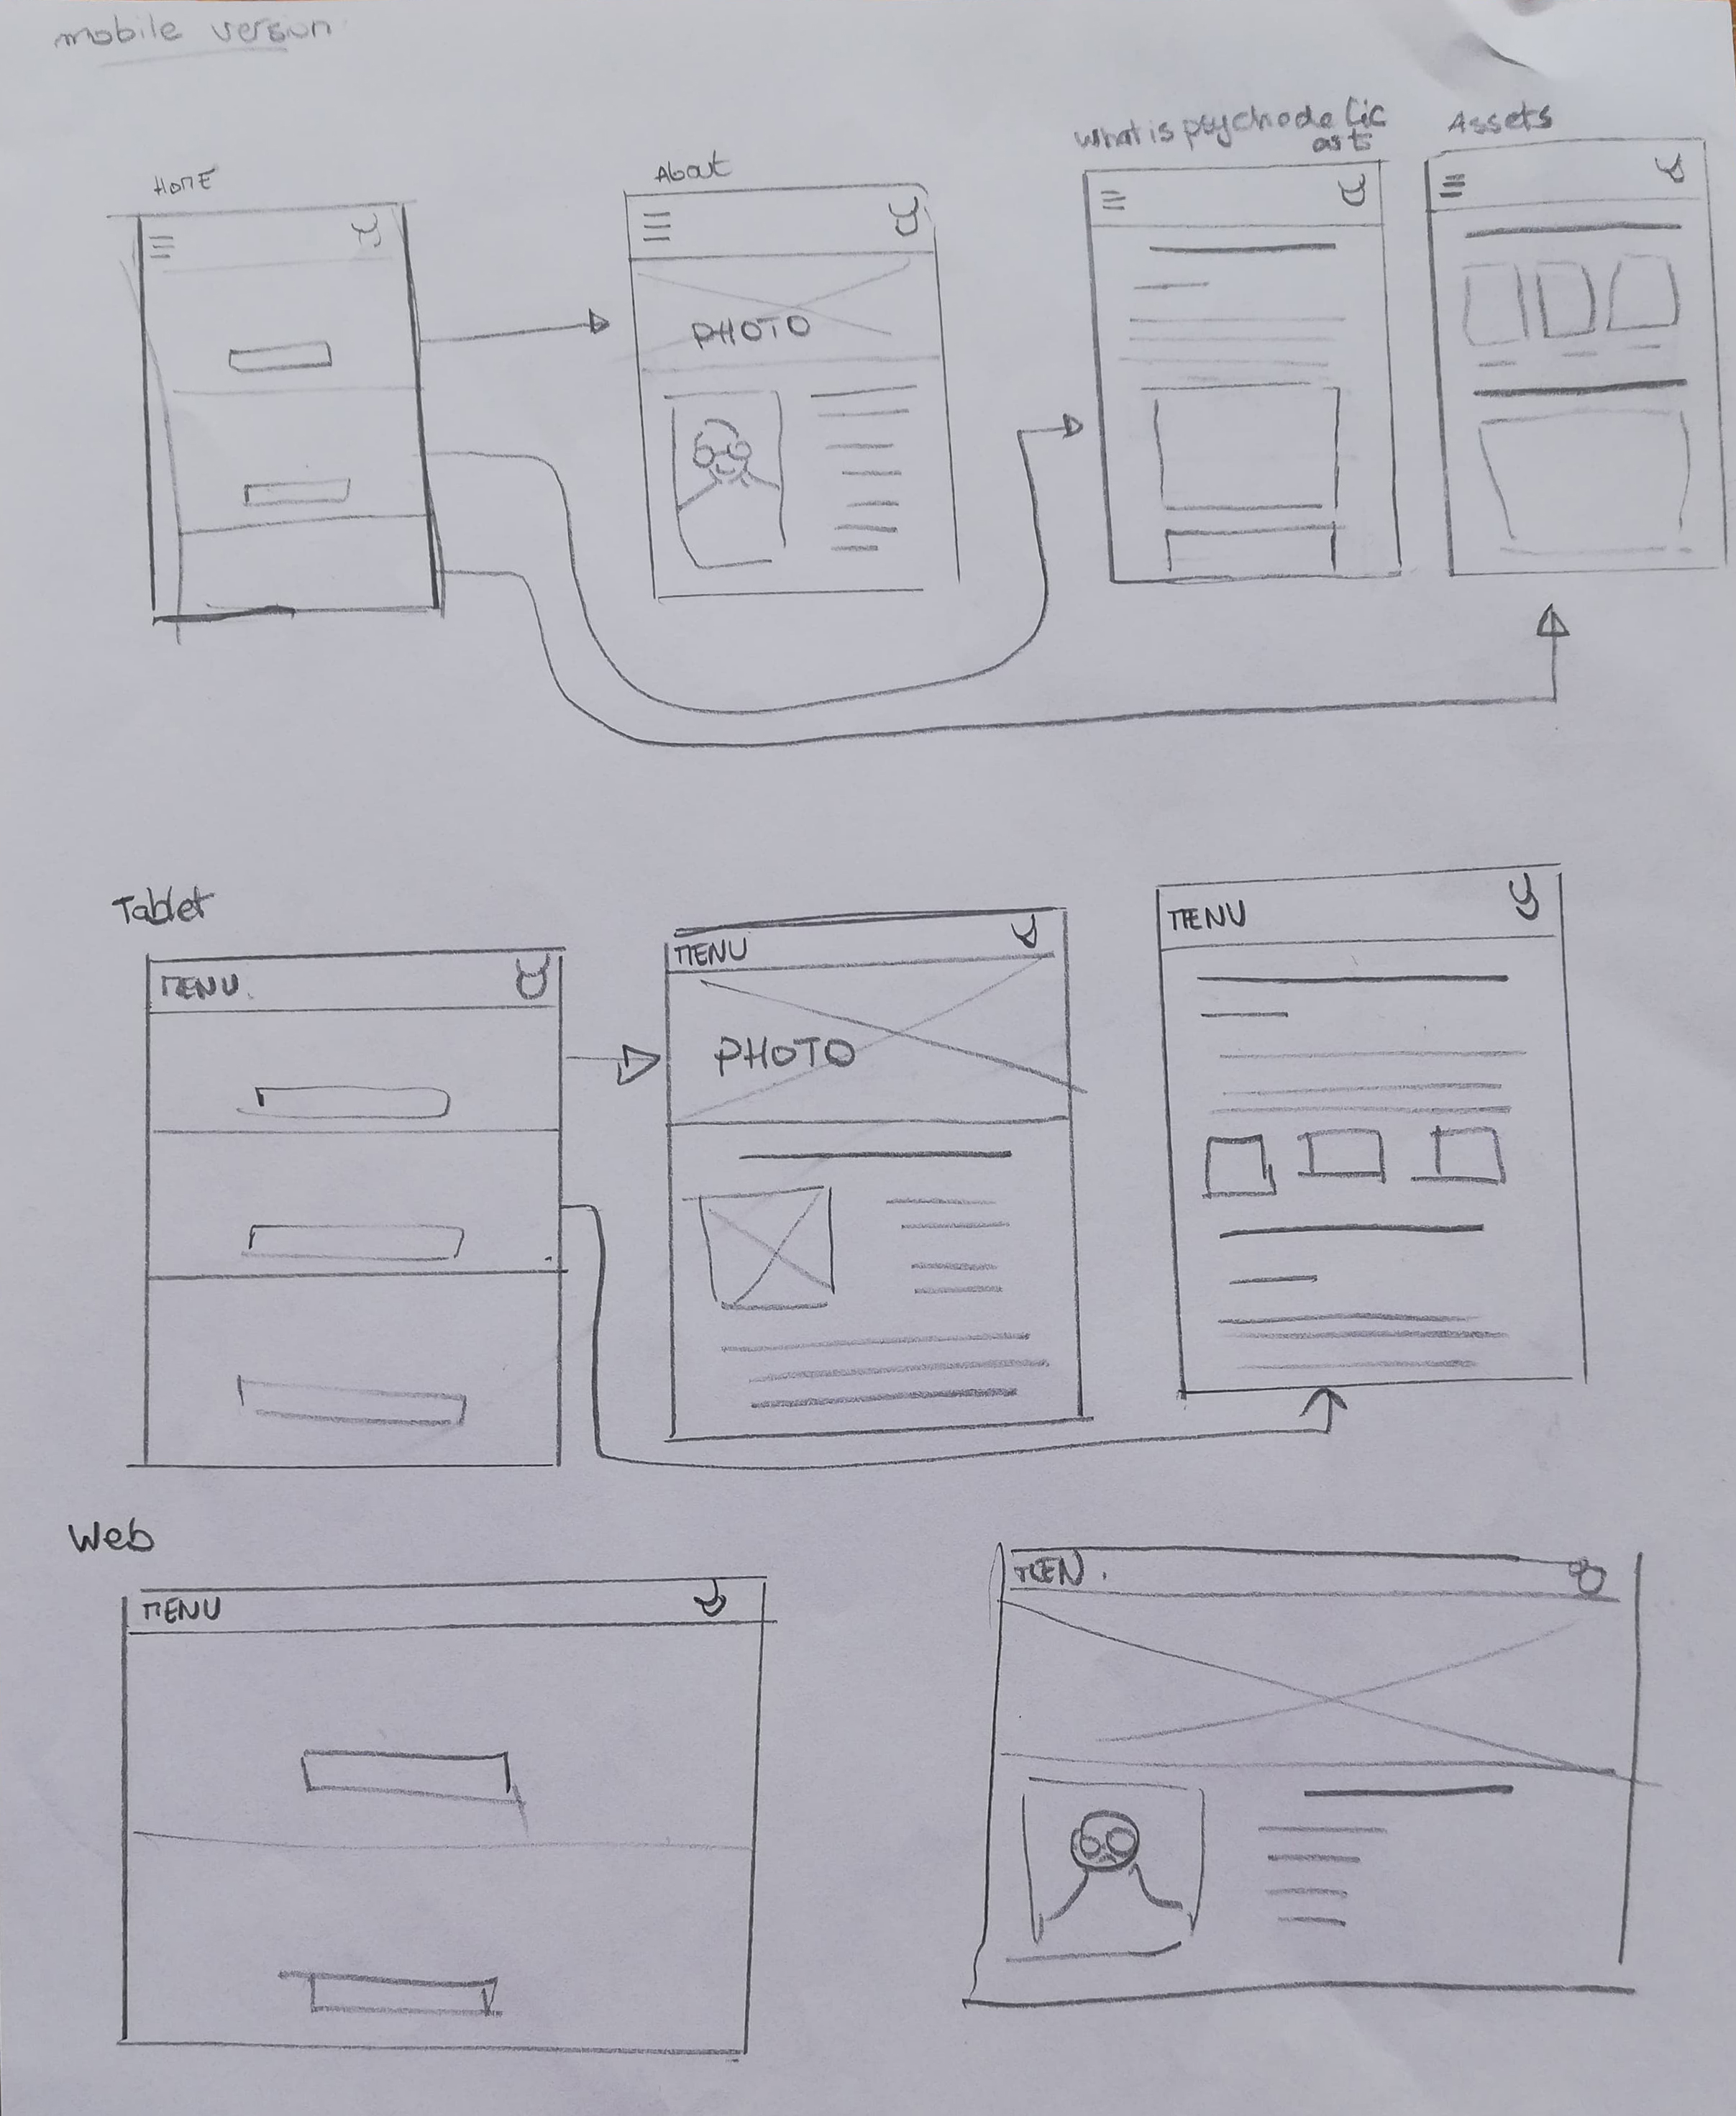 mobile version
HOME
About
What is psychodelic
art
Assets
PHOTO
Tablet
MENU.
MENU
MENU
PHOTO
Web
MENU
MEN.